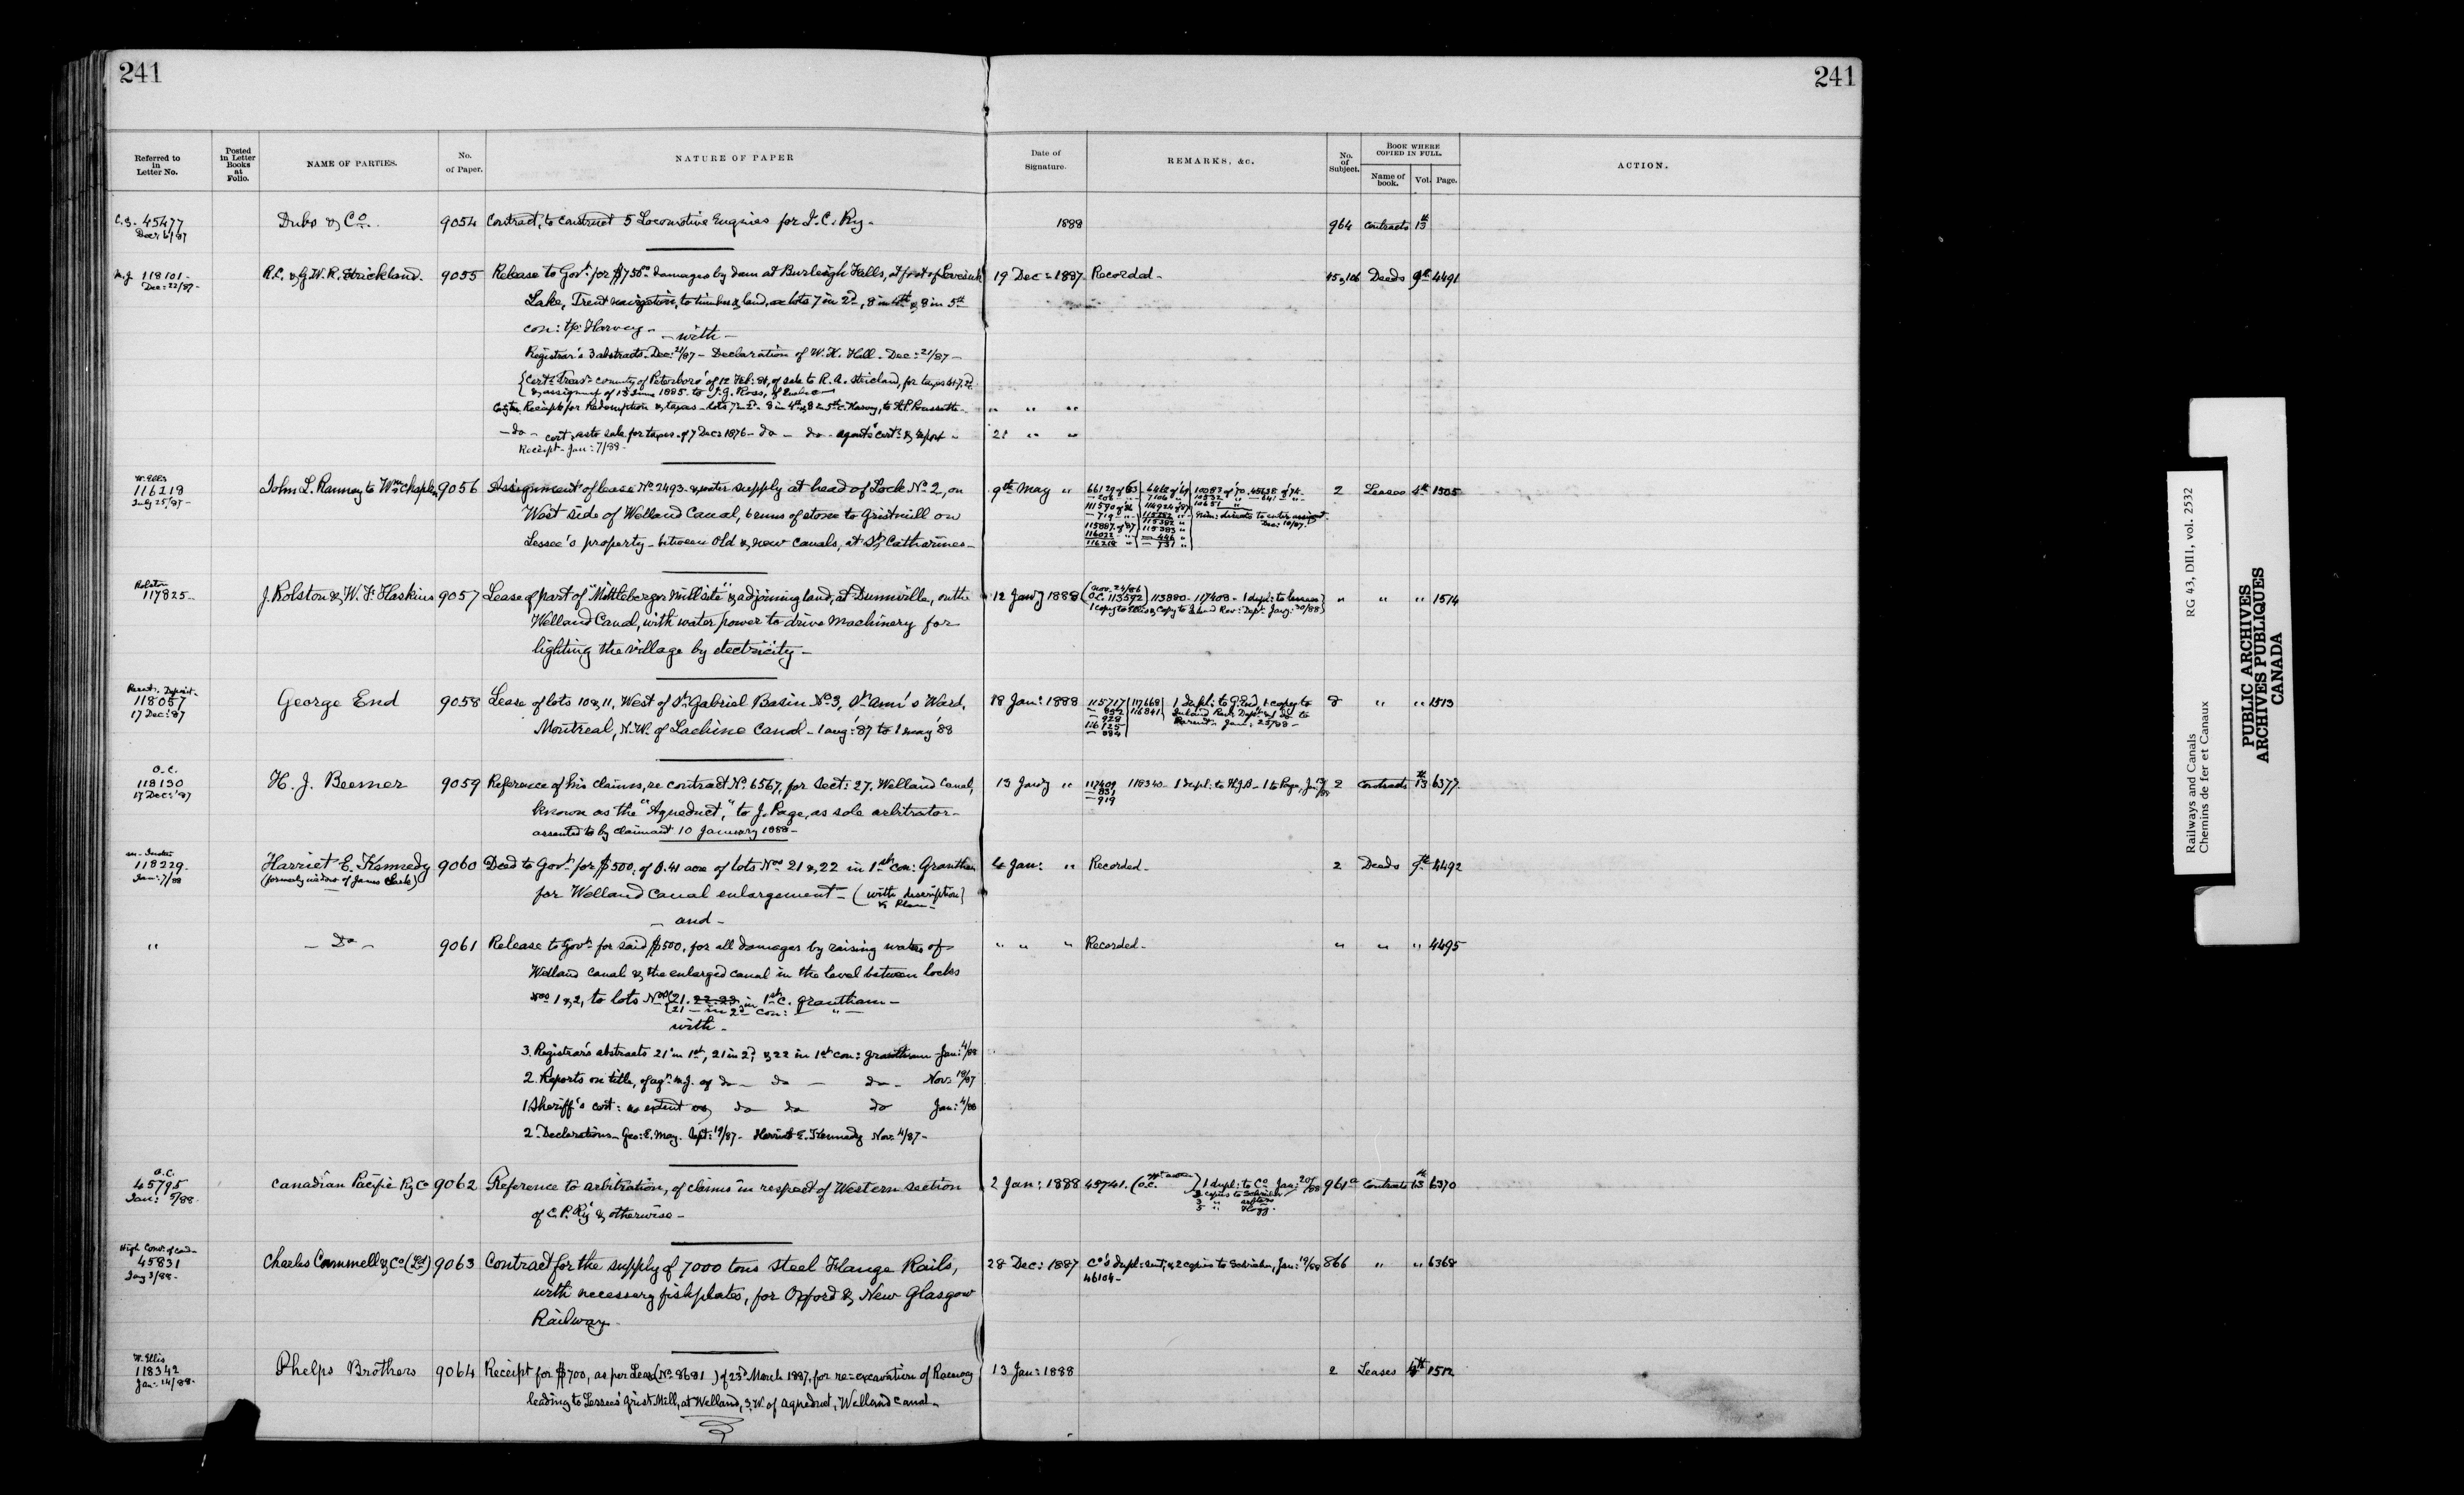 241
241
Referred to in Letter No.
Posted in Letter Books at Folio.
NAME OF PARTIES.
No. of Paper.
NATURE OF PAPER
Date of Signature.
REMARKS, &c.
No. of Subject.
BOOK WHERE COPIED IN FULL.
Name of book.
Vol.
Page.
ACTION.
45477 Dubs & Co. 9054 Contract, to construct 5 Locomotive Engines for I.C. Ry- 1888 964 Contracts 13th
Dec: 6/87
118101- R.C. & G.W.R. Strickland. 9055 Release to Govt for $756 damages by dam at Burleigh Falls, at foot of Lovesick 19 Dec: 1887. Recorded- Deeds 9th 4491
Dec: 22/87-
Lake, Trent navigation, to timber & land, on lots 7 in 2d, 8 in 4th & 8 in 5th
con: tp: Harvey-
- with -
Registrar's 3 abstracts- Dec: 21/87- Declaration of W.H. Hill- Dec: 21/87-
county of Peterboro' of 12 Feb: of sale to R.A. Strickland, for taxes
& assignmt of 13 June 1885 to J.G. Ross, of Quebec
Receipt for Redemption & taxes- lots 7 in 2d- 8 in 4th & 8 in 5th c. Harvey, to
- do - cert: as to sale for taxes- of 7 Dec: 1876- do - do - agents' cert: & report - 21 " "
Receipt- Jan: 7/88-
W. Ellis
116218 John L. Ranney to Wm Chaplin 9056 Assignment of lease No 2493- & water supply at head of Lock No 2, on 9th May " 2 Leases 4th 1505
July 25/87-
West side of Welland Canal, 6 runs of stone to Gristmill on
Lessee's property- between Old & new canals, at St Catharines-
Rolston
117825- J. Rolston & W.F. Haskins 9057 Lease of part of "Mittleberger Mill site" & adjoining land, at Dunnville, on the 12 Jany 1888 (Nov. 24/86 O.C. 113592) 113880- 117408- 1 dupl: to lessees " " " 1514
Welland Canal, with water power to drive Machinery for
lighting the village by electricity-
118057 George End 9058 Lease of lots 10 & 11, West of St Gabriel Basin No 3, St Ann's Ward, 18 Jan: 1888 115717 117668 1 Dupl: to G. End, 1 copy to 8 " " 1513
17 Dec: 87
Montreal, N.W. of Lachine Canal- 1 Aug: '87 to 1 May '88
O.C.
118130 H.J. Beemer 9059 Reference of his claims, re contract No. 6567, for Sect: 27, Welland Canal, 13 Jany " 117409 118340- 1 dupl: to H.J.B- 1 to Page, 2 Contracts 13th 6377
17 Dec: '87
known as the "Aqueduct," to J. Page, as sole arbitrator-
assented to by claimant 10 January 1888-
118229- Harriet E. Kennedy 9060 Deed to Govt for $500, of 0.41 acre of lots Nos 21 & 22 in 1st con: Grantham 4 Jan: " Recorded- 2 Deeds 9th 4492
Jan: 7/88 (formerly widow of James Clark)
for Welland Canal enlargement- (with description & Plan-
- and -
" - Do - 9061 Release to Govt for said $500, for all damages by raising waters of " " " Recorded- " " " 4495
Welland Canal & the enlarged canal in the level between locks
Nos 1 & 2, to lots Nos 21. 22.23 in 1st c. Grantham-
21 - in 2d con: "
with -
3. Registrar's abstracts 21 in 1st, 21 in 2d & 22 in 1st con: Grantham Jan: 4/88
2. Reports on title, of agt M.J. of do - do - do - Nov: 19/87
1. Sheriff's cert: do do do Jan: 4/88
2. Declarations- Geo: E. May- Sept: 19/87- Harriet E. Kennedy Nov. 4/87-
O.C.
45795 Canadian Pacific Ry Co 9062 Reference to arbitration, of claims in respect of Western section 2 Jan: 1888 45741. 1 dupl: to Co Jan: 20/88 961a Contracts 13 6370
Jan: 5/88-
of C.P. Ry & otherwise-
45831 Charles Cammell & Co (Ld) 9063 Contract for the supply of 7000 tons Steel Flange Rails, 28 Dec: 1887 Co's dupl: sent, & 2 copies to Schreiber, Jan: 19/88 866 " " 6368
Jany 3/88- 46104-
with necessary fishplates, for Oxford & New Glasgow
Railway-
W. Ellis
118342 Phelps Brothers 9064 Receipt for $700, as per Lease (No 8681) of 23d March 1887, for re-excavation of Raceway 13 Jan: 1888 2 Leases 4th 1512
Jan: 14/88-
leading to Lessees' Grist Mill, at Welland, S.W. of aqueduct, Welland Canal-
Railways and Canals RG 43, DII1, vol. 2532
Chemins de fer et Canaux
PUBLIC ARCHIVES
ARCHIVES PUBLIQUES
CANADA